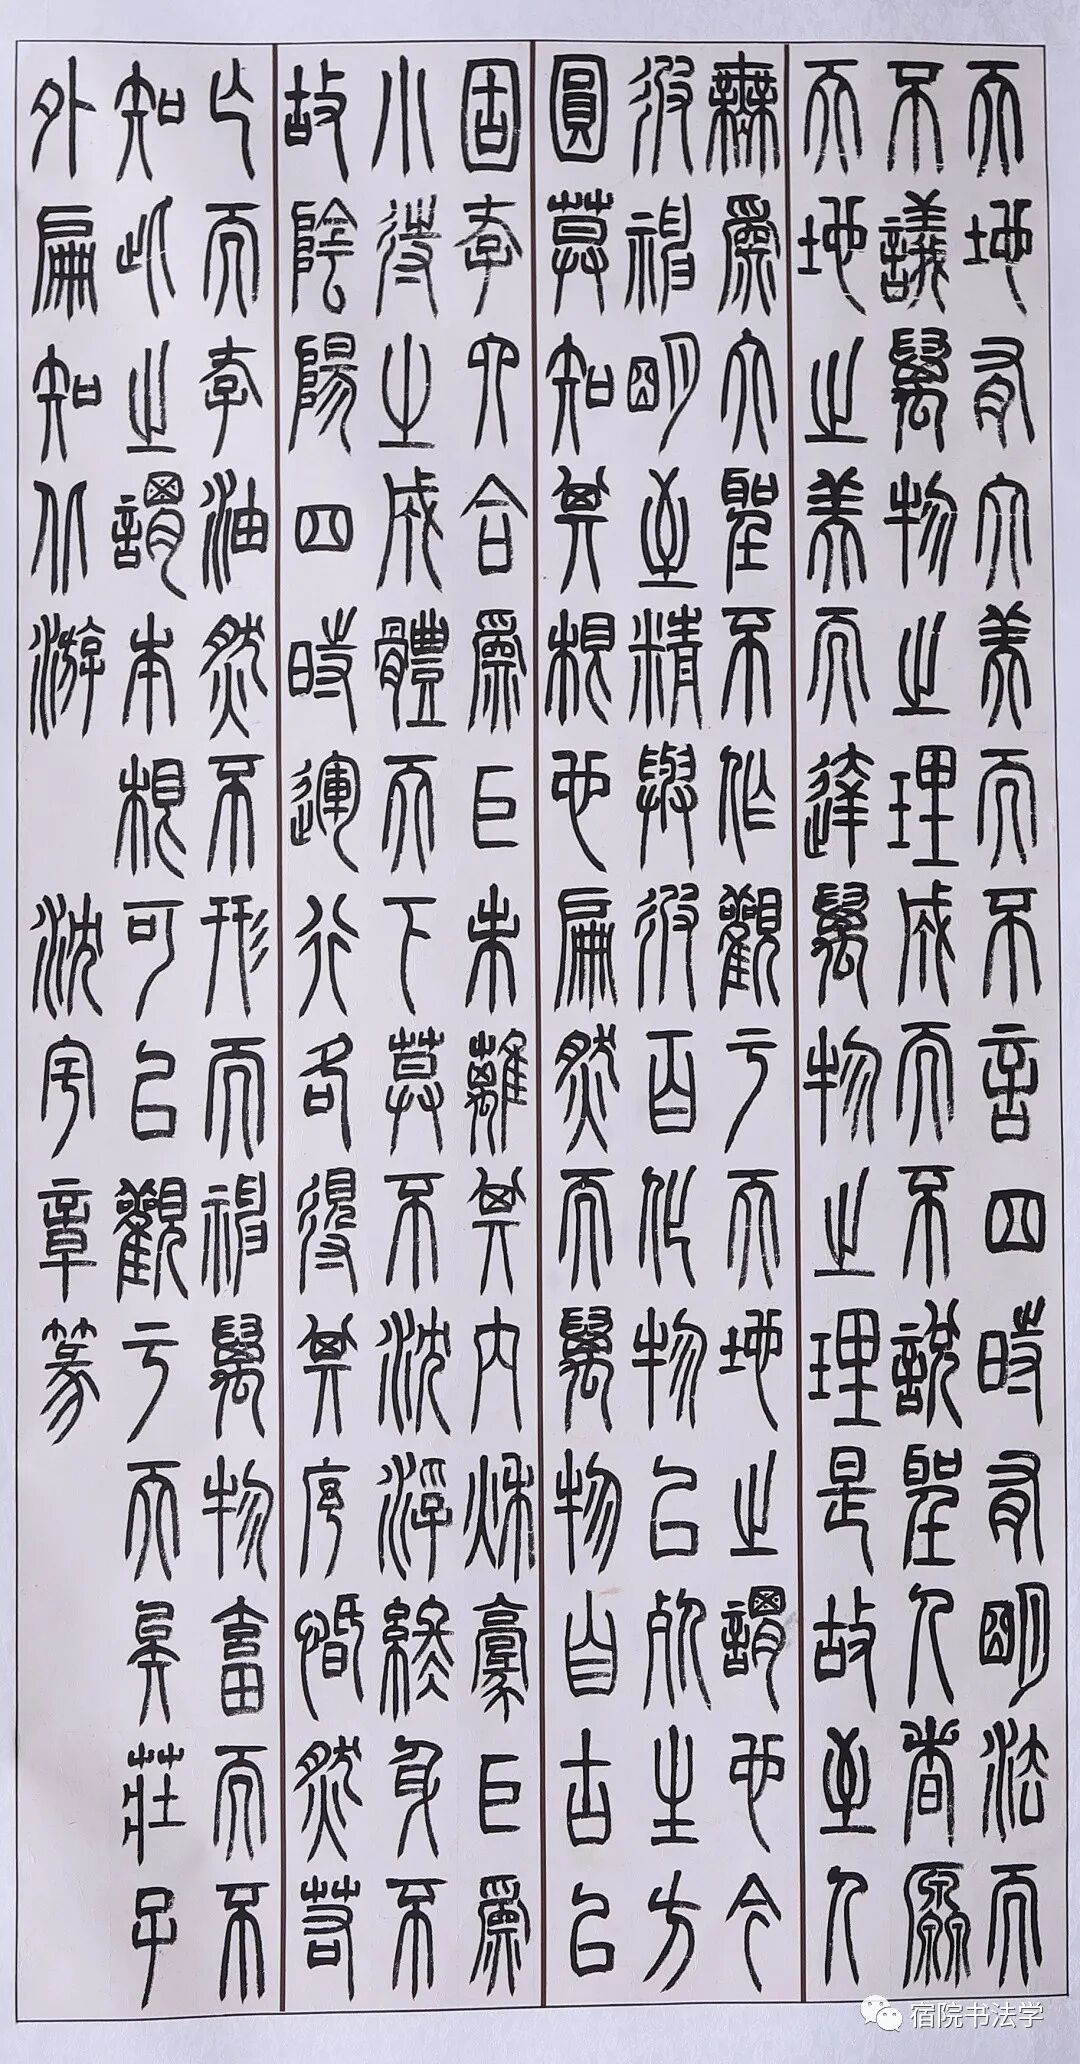 天地有大美而不言四時有明法而
不議萬物之理成而不說聖人者原
天地之美而達萬物之理是故至人
無爲大聖不作觀亏天地之謂也今
彼神明至精與彼百化物已死生方
圓莫知其根也扁然而萬物自古以
固存六合爲巨未離其内秋豪巨爲
小待之成體天下莫不沈浮終身不
故陰陽四時運行各得其序惛然若
亡而存油然不形而神萬物畜而不
知此之謂本根可以觀亏天矣莊子
外扁知北游 沈宇章篆
宿院书法学